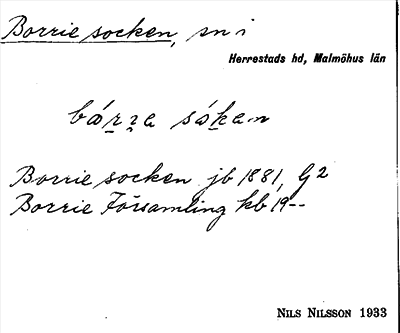 Borrie socken, sn i
Herrestads hd, Malmöhus län
bárra såkan
Borrie socken jb 1881, G2
Borrie Församling kb 19--
NILS NILSSON 1933